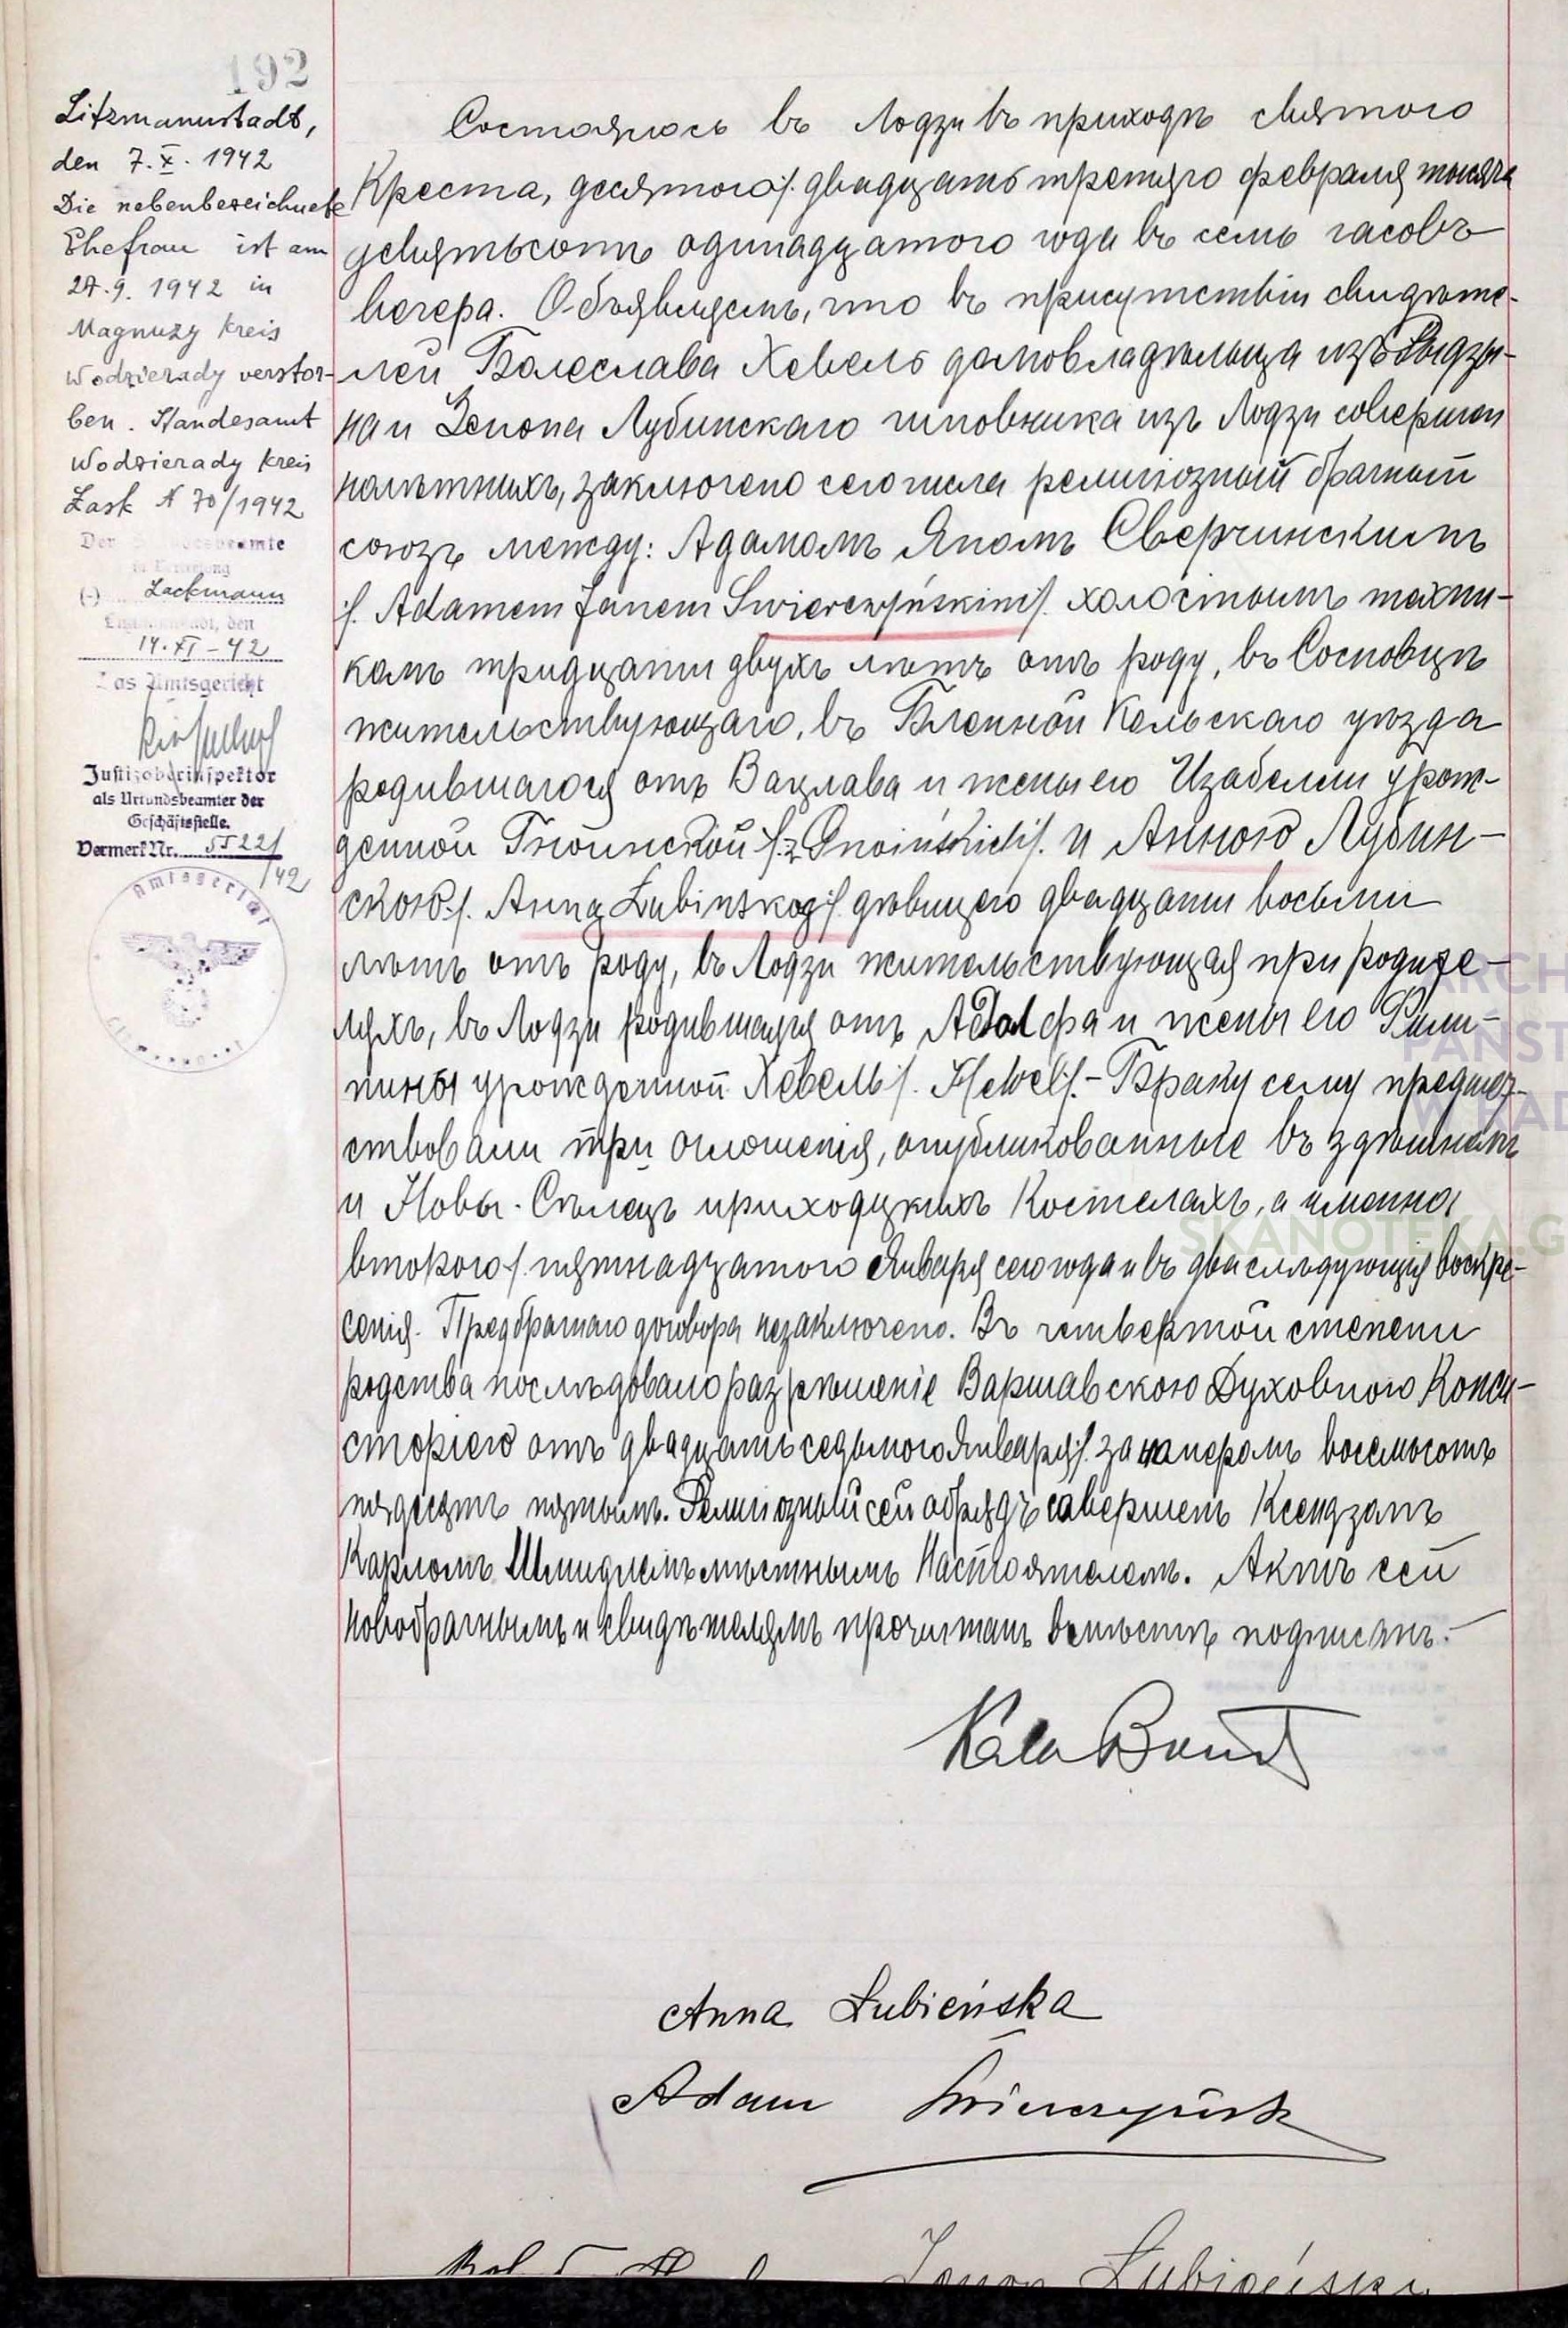 192
Litzmannstadt,
den 7. X. 1942
Die nebenbezeichnete
Ehefrau ist am
27.9.1942 in
Magnuzy Kreis
Wodzierady verstor-
ben. Standesamt
Wodzierady Kreis
Lask N 70/1942
Der
(-) Lackmann
den
14.XI-42
Das Amtsgericht
Justizoberinspektor
als Urkundsbeamter der
Geschäftsstelle.
Vermerk Nr. 5522/
/42
Amtsgericht
Состоялось въ Лодзи въ приходѣ святого
Креста, десятого /. двадцать третьяго февраля тысяча
девятьсотъ одинадцатого года въ семь часовъ
вечера. Объявляемъ, что въ присутствіи свидѣте-
лей Болеслава Хевель домовладѣльца изъ
на и Зенона Лубинскаго чиновника изъ Лодзи совершен
нолѣтнихъ, заключено сего числа религіозный брачный
союзъ между: Адамомъ Яномъ Сверчинскимъ
/. Adamem Janem Swierczyńskim /. холостымъ техни-
комъ тридцати двухъ лѣтъ отъ роду, въ Сосновцѣ
жительствующаго, въ Бленной Кольскаго уѣзда
родившагося отъ Вацлава и жены его Изабеллы урож-
денной Гноинской /. z Gnoińskich /. и Анною Лубин-
скою /. Anną Łubińską /. дѣвицею двадцати восьми
лѣтъ отъ роду, въ Лодзи жительствующая при родите-
ляхъ, въ Лодзи родившаяся отъ Адольфа и жены его Фили-
пины урожденной Хевель /. Hewel /. - Браку сему предшест-
ствовали три оглошенія, опубликованные въ здѣшнемъ
и Новы-Сѣлецъ приходскихъ Костелахъ, а именно
второго /. пятнадцатого Января сего года и въ два слѣдующія воскре-
сенія. Предбрачнаго договора незаключено. Въ четвертой степени
родства послѣдовало разрѣшеніе Варшавскою Духовною Конси-
сторіею отъ двадцать седьмого Января /. за номеромъ восемьсотъ
пядесятъ пятымъ. Религіозный сей обрядъ совершенъ Ксендзомъ
Карломъ Шмиделемъ мѣстнымъ Настоятелемъ. Актъ сей
новобрачнымъ и свидѣтелямъ прочитанъ подписанъ.-
Anna Łubieńska
Adam
ARCH
PAŃST
W RAD
SKANOTEKA.G